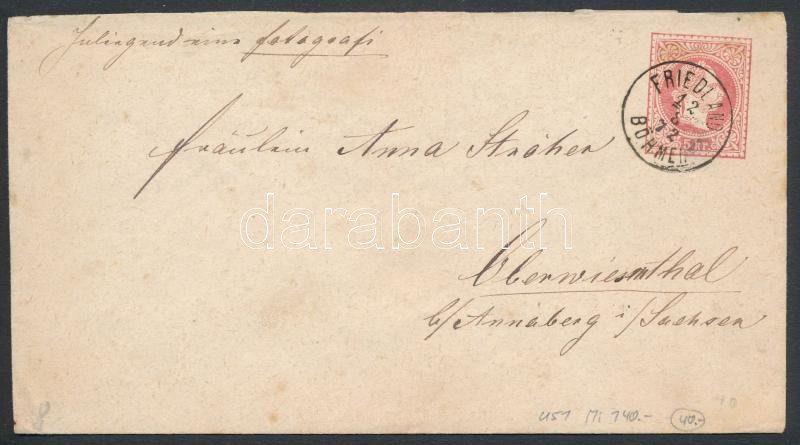 Inliegend eine fotografi
FRIEDLAND
12
8
72
BÖHMEN
5 kr.
Fräulein Anna Ströher
darabanth
Oberwiesenthal
b/Annaberg i/Sachsen
U51 Mi 140.- 40.-